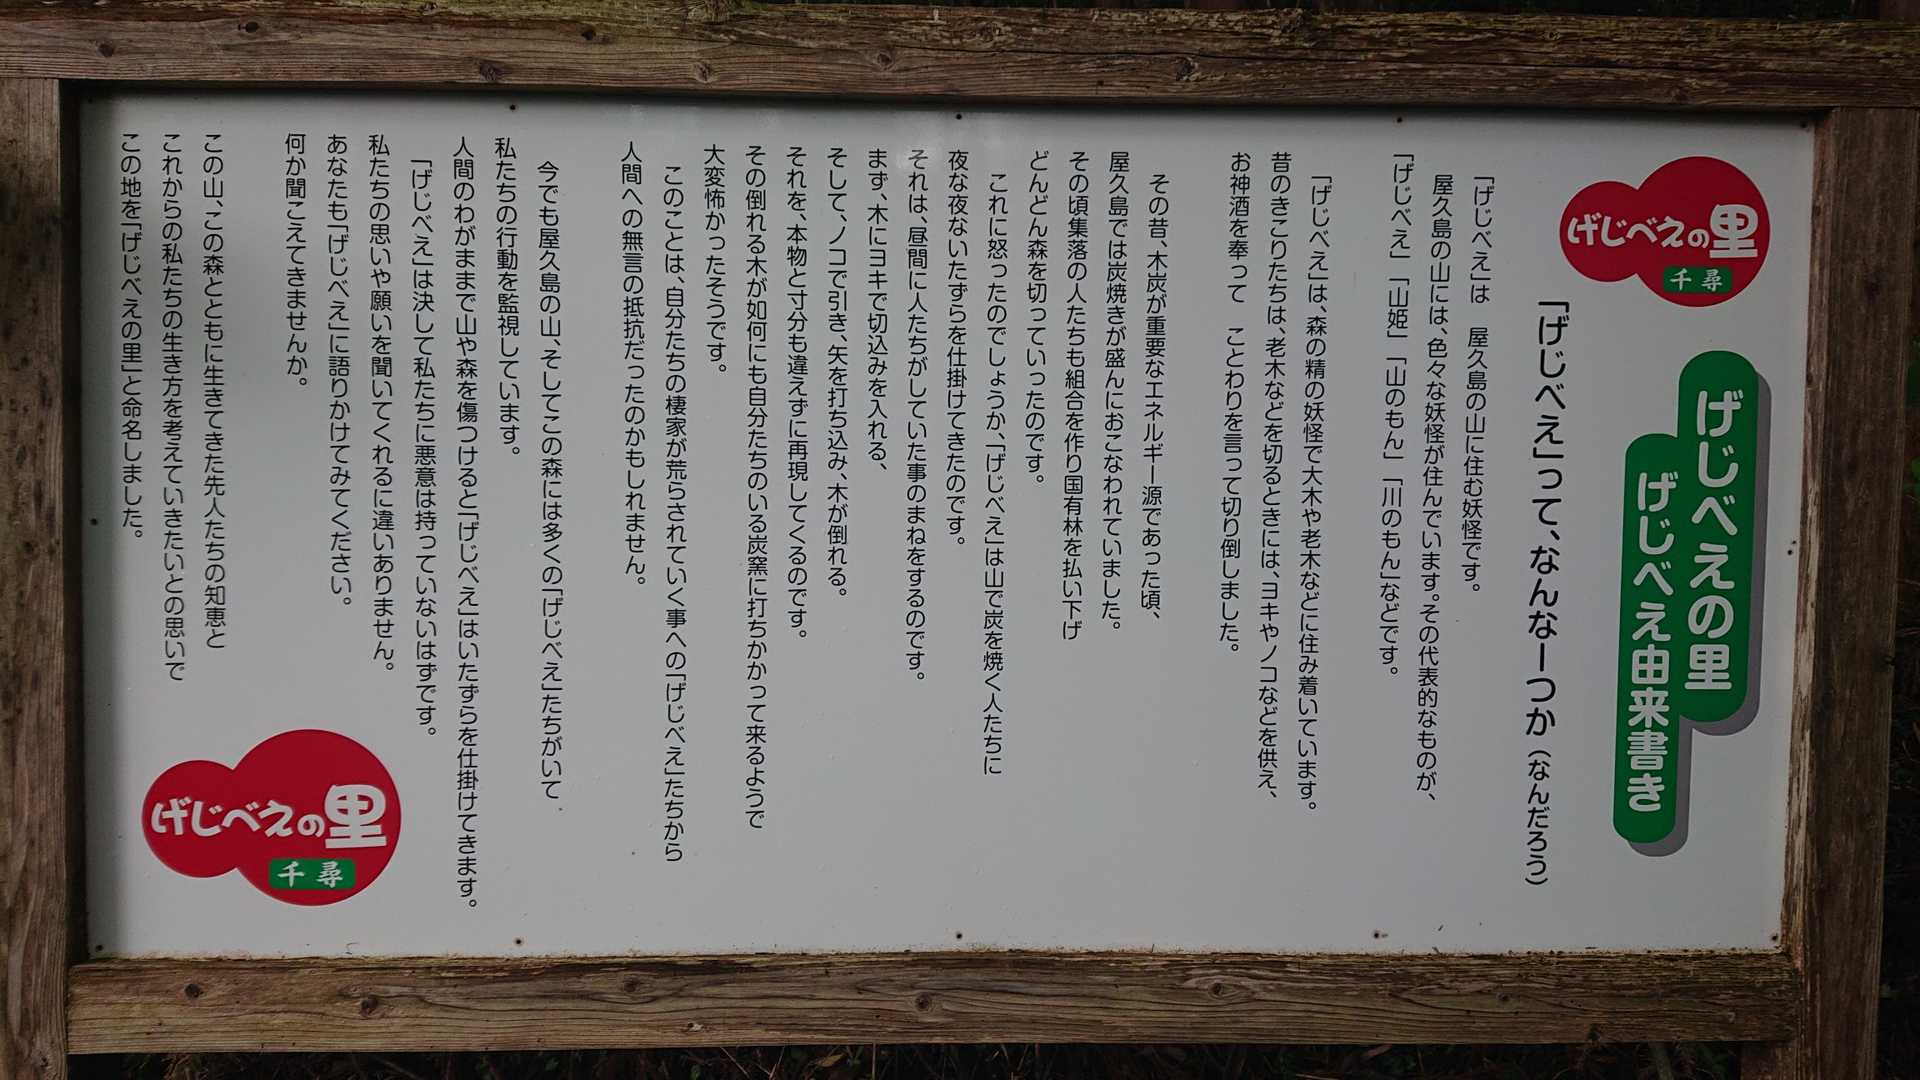 げじべえの里
千尋
げじべえの里
げじべえ由来書き
「げじべえ」って、なんなーつか（なんだろう）
「げじべえ」は　屋久島の山に住む妖怪です。
屋久島の山には、色々な妖怪が住んでいます。その代表的なものが、
「げじべえ」「山姫」「山のもん」「川のもん」などです。
「げじべえ」は、森の精の妖怪で大木や老木などに住み着いています。
昔のきこりたちは、老木などを切るときには、ヨキやノコなどを供え、
お神酒を奉って　ことわりを言って切り倒しました。
その昔、木炭が重要なエネルギー源であった頃、
屋久島では炭焼きが盛んにおこなわれていました。
その頃集落の人たちも組合を作り国有林を払い下げ
どんどん森を切っていったのです。
これに怒ったのでしょうか、「げじべえ」は山で炭を焼く人たちに
夜な夜ないたずらを仕掛けてきたのです。
それは、昼間に人たちがしていた事のまねをするのです。
まず、木にヨキで切込みを入れる、
そして、ノコで引き、矢を打ち込み、木が倒れる。
それを、本物と寸分も違えずに再現してくるのです。
その倒れる木が如何にも自分たちのいる炭窯に打ちかかって来るようで
大変怖かったそうです。
このことは、自分たちの棲家が荒らされていく事への「げじべえ」たちから
人間への無言の抵抗だったのかもしれません。
今でも屋久島の山、そしてこの森には多くの「げじべえ」たちがいて
私たちの行動を監視しています。
人間のわがままで山や森を傷つけると「げじべえ」はいたずらを仕掛けてきます。
「げじべえ」は決して私たちに悪意は持っていないはずです。
私たちの思いや願いを聞いてくれるに違いありません。
あなたも「げじべえ」に語りかけてみてください。
何か聞こえてきませんか。
この山、この森とともに生きてきた先人たちの知恵と
これからの私たちの生き方を考えていきたいとの思いで
この地を「げじべえの里」と命名しました。
げじべえの里
千尋